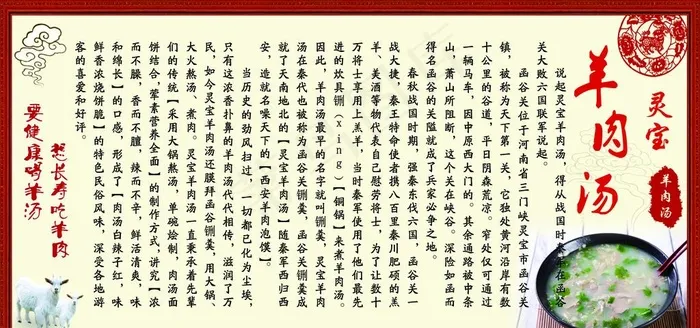 灵宝
羊肉汤
羊肉汤
说起灵宝羊肉汤，得从战国时秦军在函谷
关大败六国联军说起。
函谷关位于河南省三门峡灵宝市函谷关
镇，被称为天下第一关，它独处黄河沿岸有数
十公里的谷道，平日阴森荒凉。窄处仅可通过
一辆马车，因中原西大门的。其余通路被中条
山，萧山所阻断，这个关在峡谷。深险如函而
得名函谷的关隘就成了兵家必争之地。
春秋战国时期，强秦东伐六国，函谷关一
战大捷，秦王特命使者携八百里秦川肥硕的羔
羊、美酒等物代表自己慰劳将士，为了让数十
万将士享用上羔羊，当时秦军使用了他们最先
进的炊具铏（xing）【铜锅】来煮羊肉汤。
因此，羊肉汤最早的名字就叫铏羹，灵宝羊肉
汤在秦代也被称为函谷关铏羹，函谷铏羹，也
就了天南地北的【灵宝羊肉汤】随秦军西归西
安，造就名噪天下的【西安羊肉泡馍】。
当历史的劲风扫过，一切都已化为尘埃，
只有这浓香扑鼻的羊肉汤代代相传，滋润了万
民，如今灵宝羊肉汤还膜拜函谷铏羹，用大锅、
大火熬汤、煮肉。灵宝羊肉汤一直秉承着先辈
们的传统【采用大锅熬汤，单碗烩制，肉汤面
饼结合，荤素营养全面】的制作方式，讲究【浓
而不腻，香而不膻，辣而不辛，鲜活清爽，味
和绵长】的口感，形成了【肉汤白辣子红，味
鲜香浓烧饼脆】的特色民俗风味，深受各地游
客的喜爱和好评。
想长寿吃羊肉
要健康喝羊汤